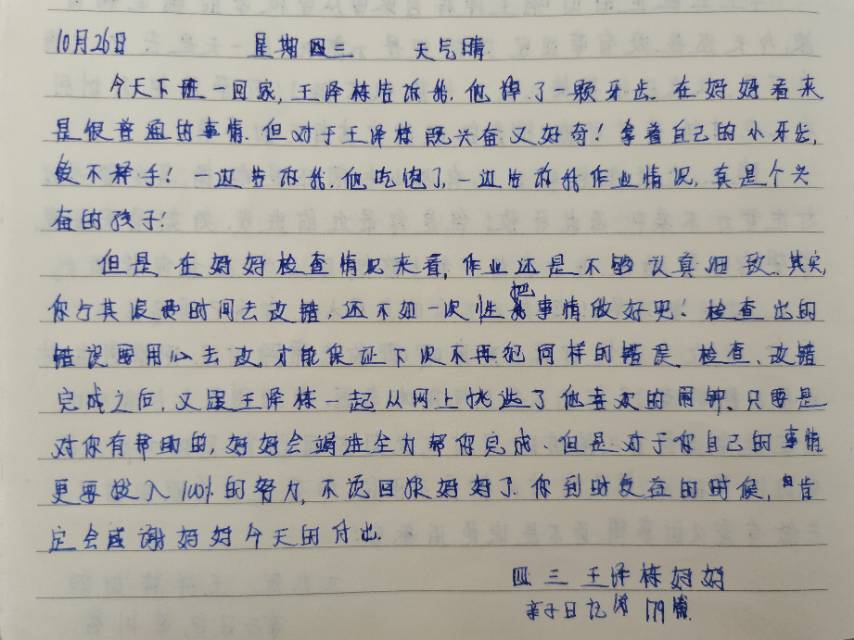 10月26日 星期三 天气晴
今天下班一回家,王泽栋告诉我.他掉了一颗牙齿.在妈妈看来
是很普通的事情.但对于王泽栋既兴奋又好奇!拿着自己的小牙齿,
爱不释手!一边告诉我.他吃饱了,一边告诉我作业情况,真是个兴
奋的孩子!
但是,在妈妈检查情况来看,作业还是不够认真细致.其实,
你与其浪费时间去改错.还不如一次性把事情做好呢.检查出的
错误要用心去改,才能保证下次不再犯同样的错误.检查、改错
完成之后,又跟王泽栋一起从网上挑选了他喜欢的闹钟、只要是
对你有帮助的,妈妈会竭进全力帮你完成.但是对于你自己的事情
更要投入100%的努力,不该回报妈妈了.你到时受益的时候,肯
定会感谢妈妈今天的付出.
四三 王泽栋妈妈
亲子日记第 179篇